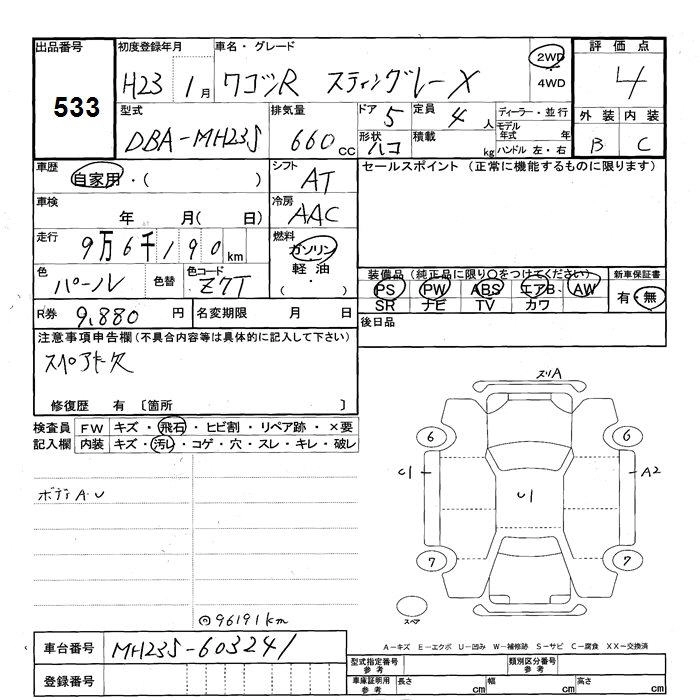 出品番号 初度登録年月 車名・グレード 評価点
533 H23 1月 ワゴンR スティングレーX 2WD ・4WD 4
型式 排気量 ドア 5 定員 4人 ディーラー・並行 外装 内装
DBA-MH23S 660cc 形状 ハコ 積載 kg モデル年式 年 B C
ハンドル 左・右
車歴 シフト セールスポイント (正常に機能するものに限ります)
自家用・( ) AT
車検 冷房
年 月( 日) AAC
走行 燃料
9万6千190km ガソリン
軽油
(・)
色 色替 色コード
パール Z7T
装備品 (純正品に限り○をつけてください) 新車保証書
PS PW ABS エアB・ AW 有・無
SR ナビ TV カワ
R券 9,880 円 名変期限 月 日
後日品
注意事項申告欄 (不具合内容等は具体的に記入して下さい)
スペアキー欠
修復歴 有 〔箇所 〕
検査員 FW キズ・飛石・ヒビ割・リペア跡・×要
記入欄 内装 キズ・汚レ・コゲ・穴・スレ・キレ・破レ
ボディA.U
スリA
6 6
C1 U1 A2
7 7
スペア
◎96191km
車台番号 MH23S-603241
A-キズ E-エクボ U-凹み W-補修跡 S-サビ C-腐食 XX-交換済
登録番号
型式指定番号 参考 類別区分番号 参考
車庫証明用 参考 長さ cm 幅 cm 高さ cm